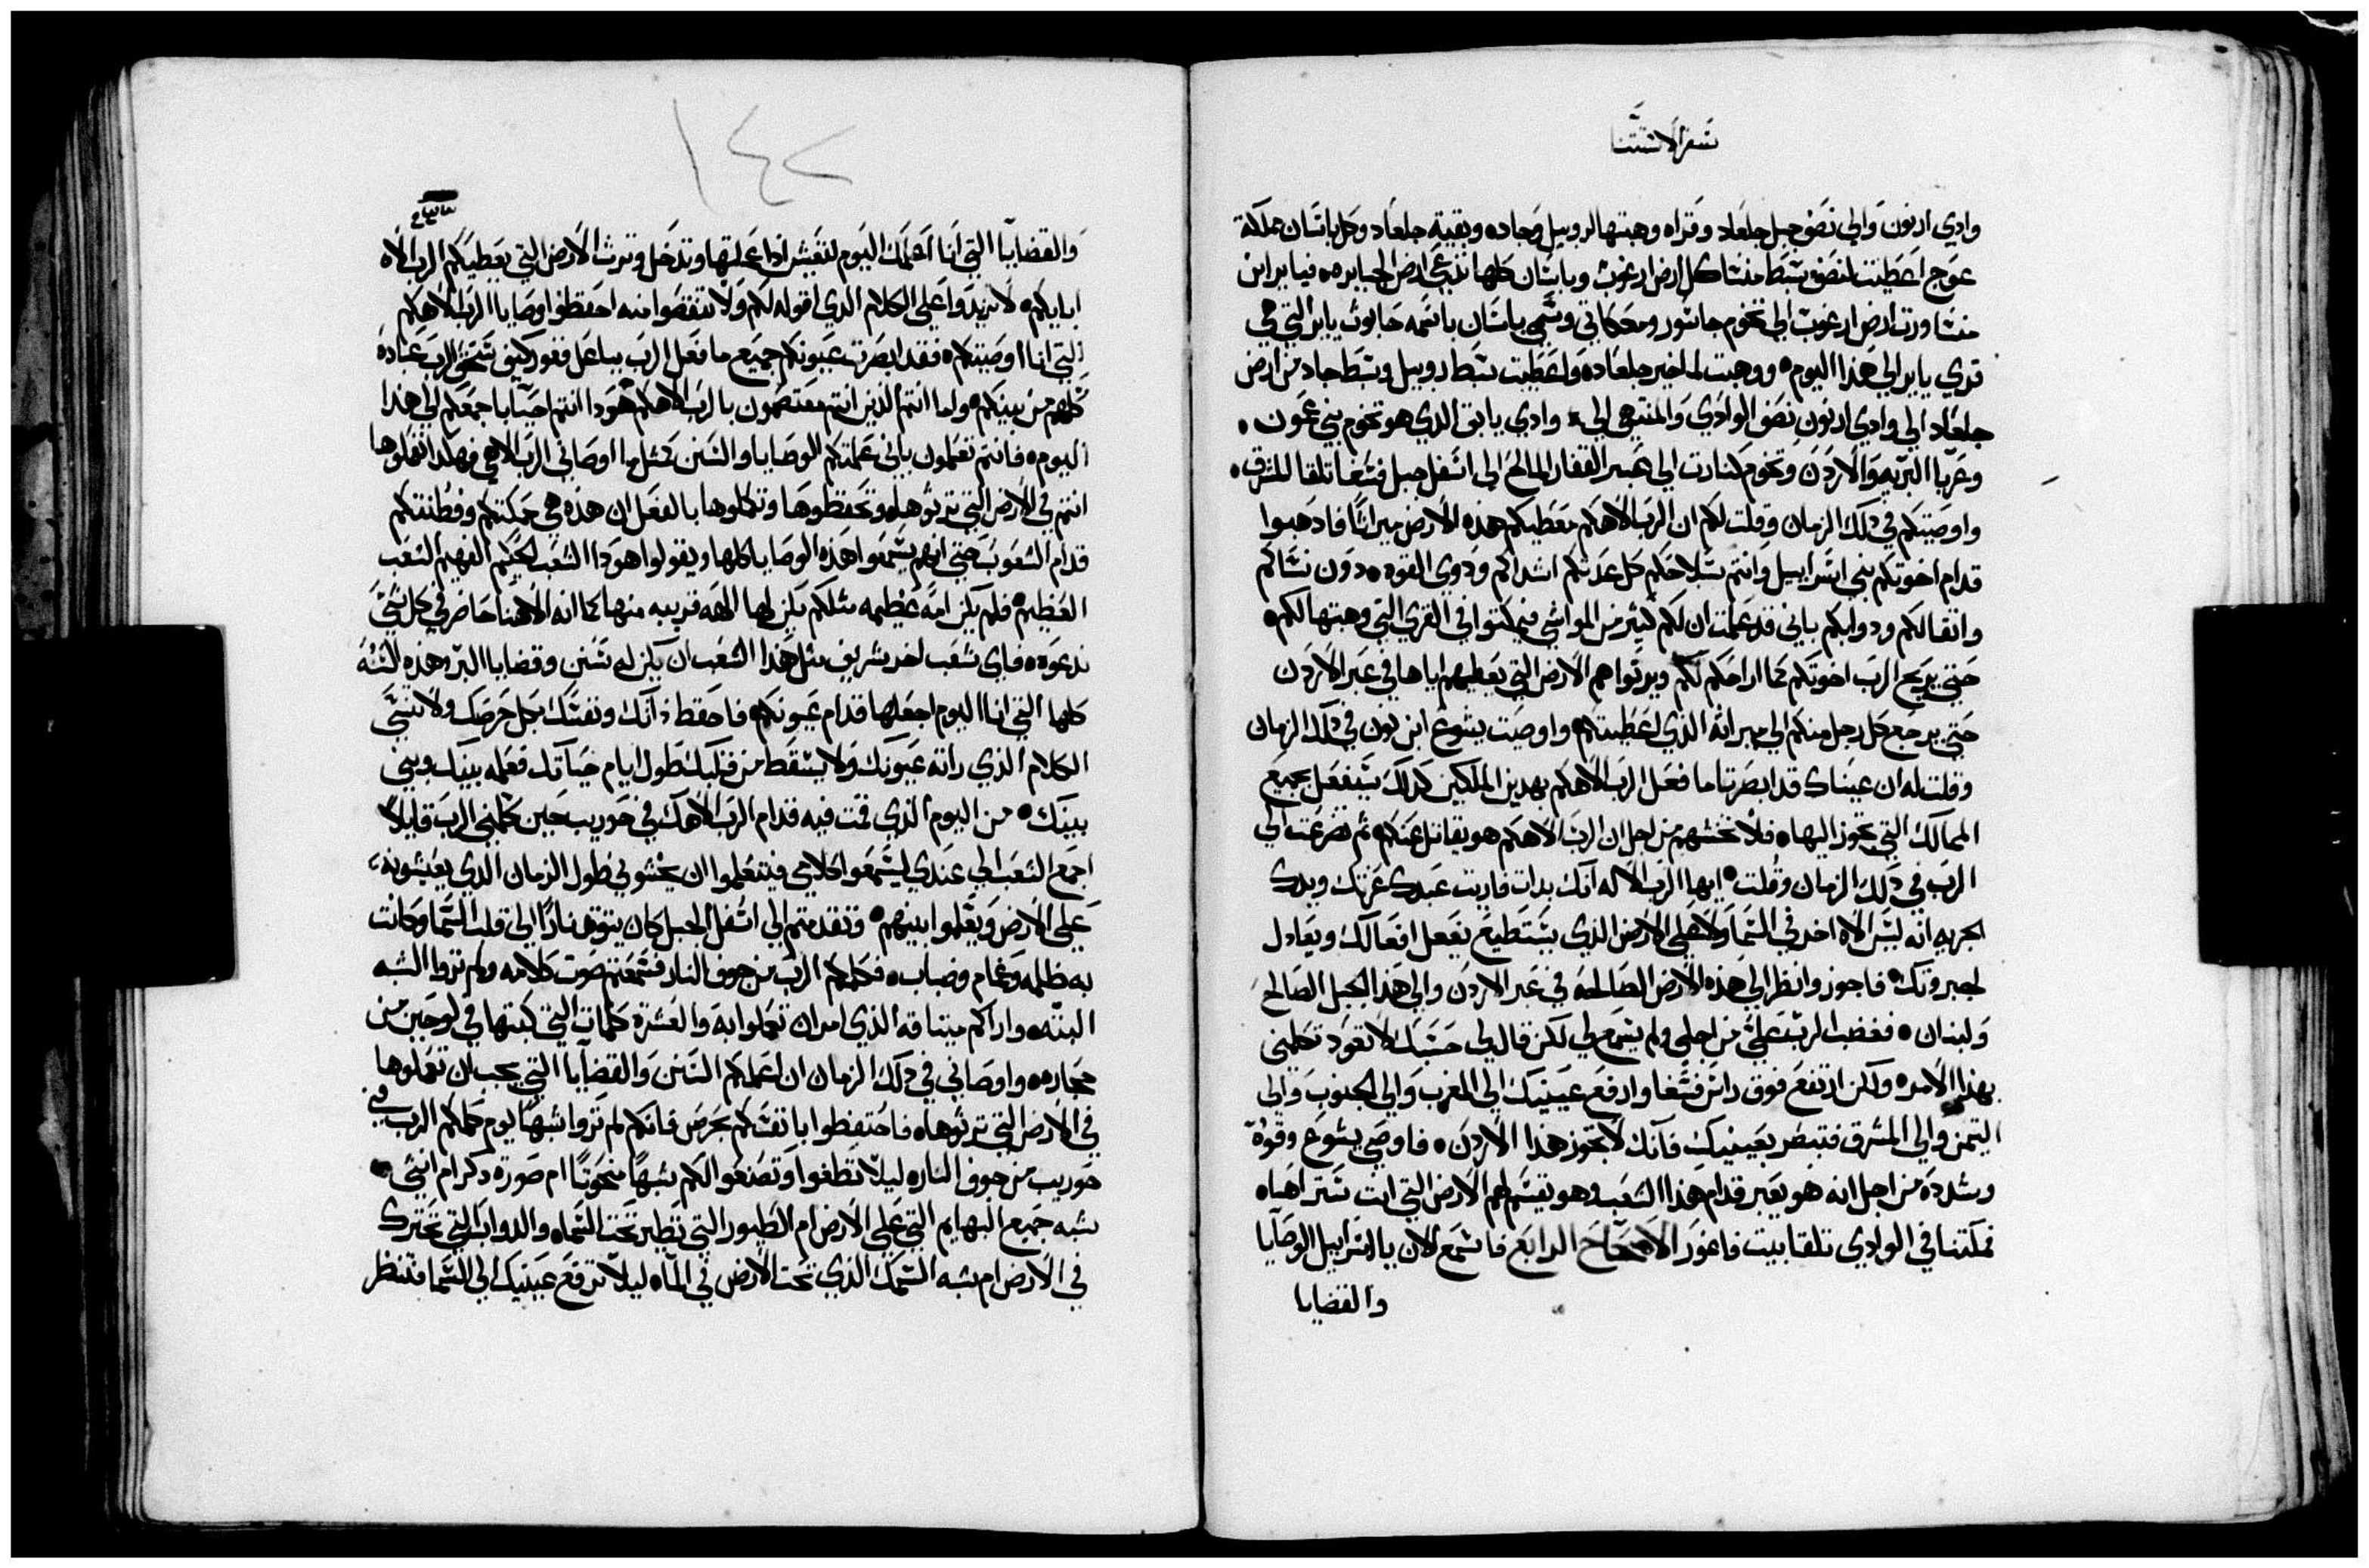 سفر الاستثنا
وادي ارنون والي نصف جبل جلعاد وقراه وهبتها لروبيل وجاده وبقية جلعاد وكل باتسان مملكة
عوج اعطيت لنصف سبط منسا كل ارض ارغوب وباسان كلها تدعي ارض الجبابره فيابر ابن
منسا ورت ارض ارغوب الي تخوم جاسور ومعكاتي وسمي باسان باسمه حابوت يابر التي هي
قري يابر الي هذا اليوم ووهبت لماخير جلعاده واعطيت سبط روبيل وسبط جاد من ارض
جلعاد الي وادي ارنون نصف الوادي والمنتهي الي وادي يابق الذي هو تخوم بني عمون
وعربا البريه والاردن وتخوم كنارت الي بحر القفار المالح الي اسفل جبل فسغا تلقا المشرق
واوصيتكم في ذلك الزمان وقلت لكم ان الرب الاهكم معطيكم هذه الارض ميراثا فادهبوا
قدام اخوتكم بني اسراييل وانتم بسلاحكم كل عدتكم اشداكم وذوي القوه دون نساكم
واتقالكم ودوابكم باني قد علمت ان لكم كثير من المواشي فيمكتوا في القري التي وهبتها لكم
حتي يريح الرب اخوتكم كما اراحكم لكم ويرتوا هم الارض التي يعطيهم اياها في عبر الاردن
حتي يرجع كل رجل منكم الي ميراته الذي اعطيتكم واوصيت يشوع ابن نون في ذلك الزمان
وقلت له ان عيناك قد ابصرتا ما فعل الرب الاهكم بهدين الملكين كدلك سيفعل بجميع
الممالك التي تجوز اليها فلا تخشهم من اجل ان الرب الاهكم هو يقاتل عنكم ثم تضرعت الي
الرب في ذلك الزمان وقلت ايها الرب الاله انك بدات فاريت عبدك عزتك ويدك
الجريه انه ليس الاه اخر في السما ولا علي الارض الذي يستطيع يفعل افعالك ويعادل
لجبروتك فاجوز وانظر الي هذه الارض الصالحه في عبر الاردن والي هذا الجبل الصالح
ولبنان فغضب الرب علي من اجلكم ولم يسمع لي لكن قال لي حسبك لا تعود تكلمني
بهذا الامر ولكن ارتفع فوق راس فسغا وارفع عينيك الي المغرب والي الجنوب والي
التيمن والي المشرق فتبصر بعينيك فانك لا تجوز هذا الاردن فاوصي يشوع وقوه
وشدده من اجل انه هو يعبر قدام هذا الشعب وهو يقسم لهم الارض التي انت ستراها
فمكتنا في الوادي تلقا بيت فاغور الاصحاح الرابع فاسمع الان يا اسراييل الوصايا
والقضايا
١٤٢
والقضايا التي انا اعلمك اليوم لتعيش اذا عملتها وتدخل وترث الارض التي يعطيكم الرب الاه
ابايكم لا تزيدوا علي الكلام الذي اقوله لكم ولا تنقصوا منه احفظوا وصايا الرب الاهكم
التي انا اوصيتكم فقد ابصرت عيونكم جميع ما فعل الرب بباعل فغور كيف سحق الرب عباده
كلهم من بينكم واما انتم الذين انتم معتصمون بالرب الاهكم هودا انتم احيا باجمعكم الي هذا
اليوم فانتم تعلمون باني علمتكم الوصايا والسنن كمثل ما اوصاني الرب الاهي فهكدا افعلوها
انتم في الارض التي ترثوها وتحفظوها وتكملوها بالفعل ان هذه هي حكمتكم وفطنتكم
قدام الشعوب حتي انهم يسمعوا هذه الوصايا كلها ويقولوا هودا الشعب الحكيم الفهيم الشعب
العظيم فلم يكن امه عظيمه مثلكم يكن لها الهه قريبه منها كما انه الاهنا حاضر في كل شي
ندعوه فاي شعب اخر شريف مثل هذا الشعب ان يكن له سنن وقضايا البر وهذه السنه
كلها التي انا اليوم اجعلها قدام عيونكم فاحفظ ذاتك ونفسك بكل حرصك ولا تنسي
الكلام الذي راته عيونك ولا يسقط من قلبك طول ايام حياتك فعلمه بنيك وبني
بنيك من اليوم الذي قمت فيه قدام الرب الاهك في حوريب حين كلمني الرب قايلا
اجمع الشعب الي عندي ليسمعوا كلامي فيتعلموا ان يخشوني طول الزمان الذي يعيشونه
علي الارض ويعلموا بنيهم وتقدمتم الي اسفل الجبل كان يتوقد نارا الي قلب السما وكانت
به ظلمه وغمام وضباب فكلمكم الرب من جوف النار فسمعتم صوت كلامه ولم تروا الشبه
البته واراكم ميتاقه الذي امر ان تعملوا به والعشرة كلمات التي كتبها في لوحين من
حجاره واوصاني في ذلك الزمان ان اعلمكم السنن والقضايا التي يجب ان تعملوها
في الارض التي ترثوها فاحتفظوا بانفسكم بحرص فانكم لم تروا شبها يوم كلمكم الرب في
حوريب من جوف النار ليلا تطغوا وتصنعوا لكم شبها منحوتا ام صورة دكر ام انثي
شبه جميع البهايم التي علي الارض ام الطيور التي تطير تحت السماه والدواب التي تتحرك
في الارض ام شبه السمك الذي تحت الارض في الماه ليلا ترفع عينيك الي السما فتنظر